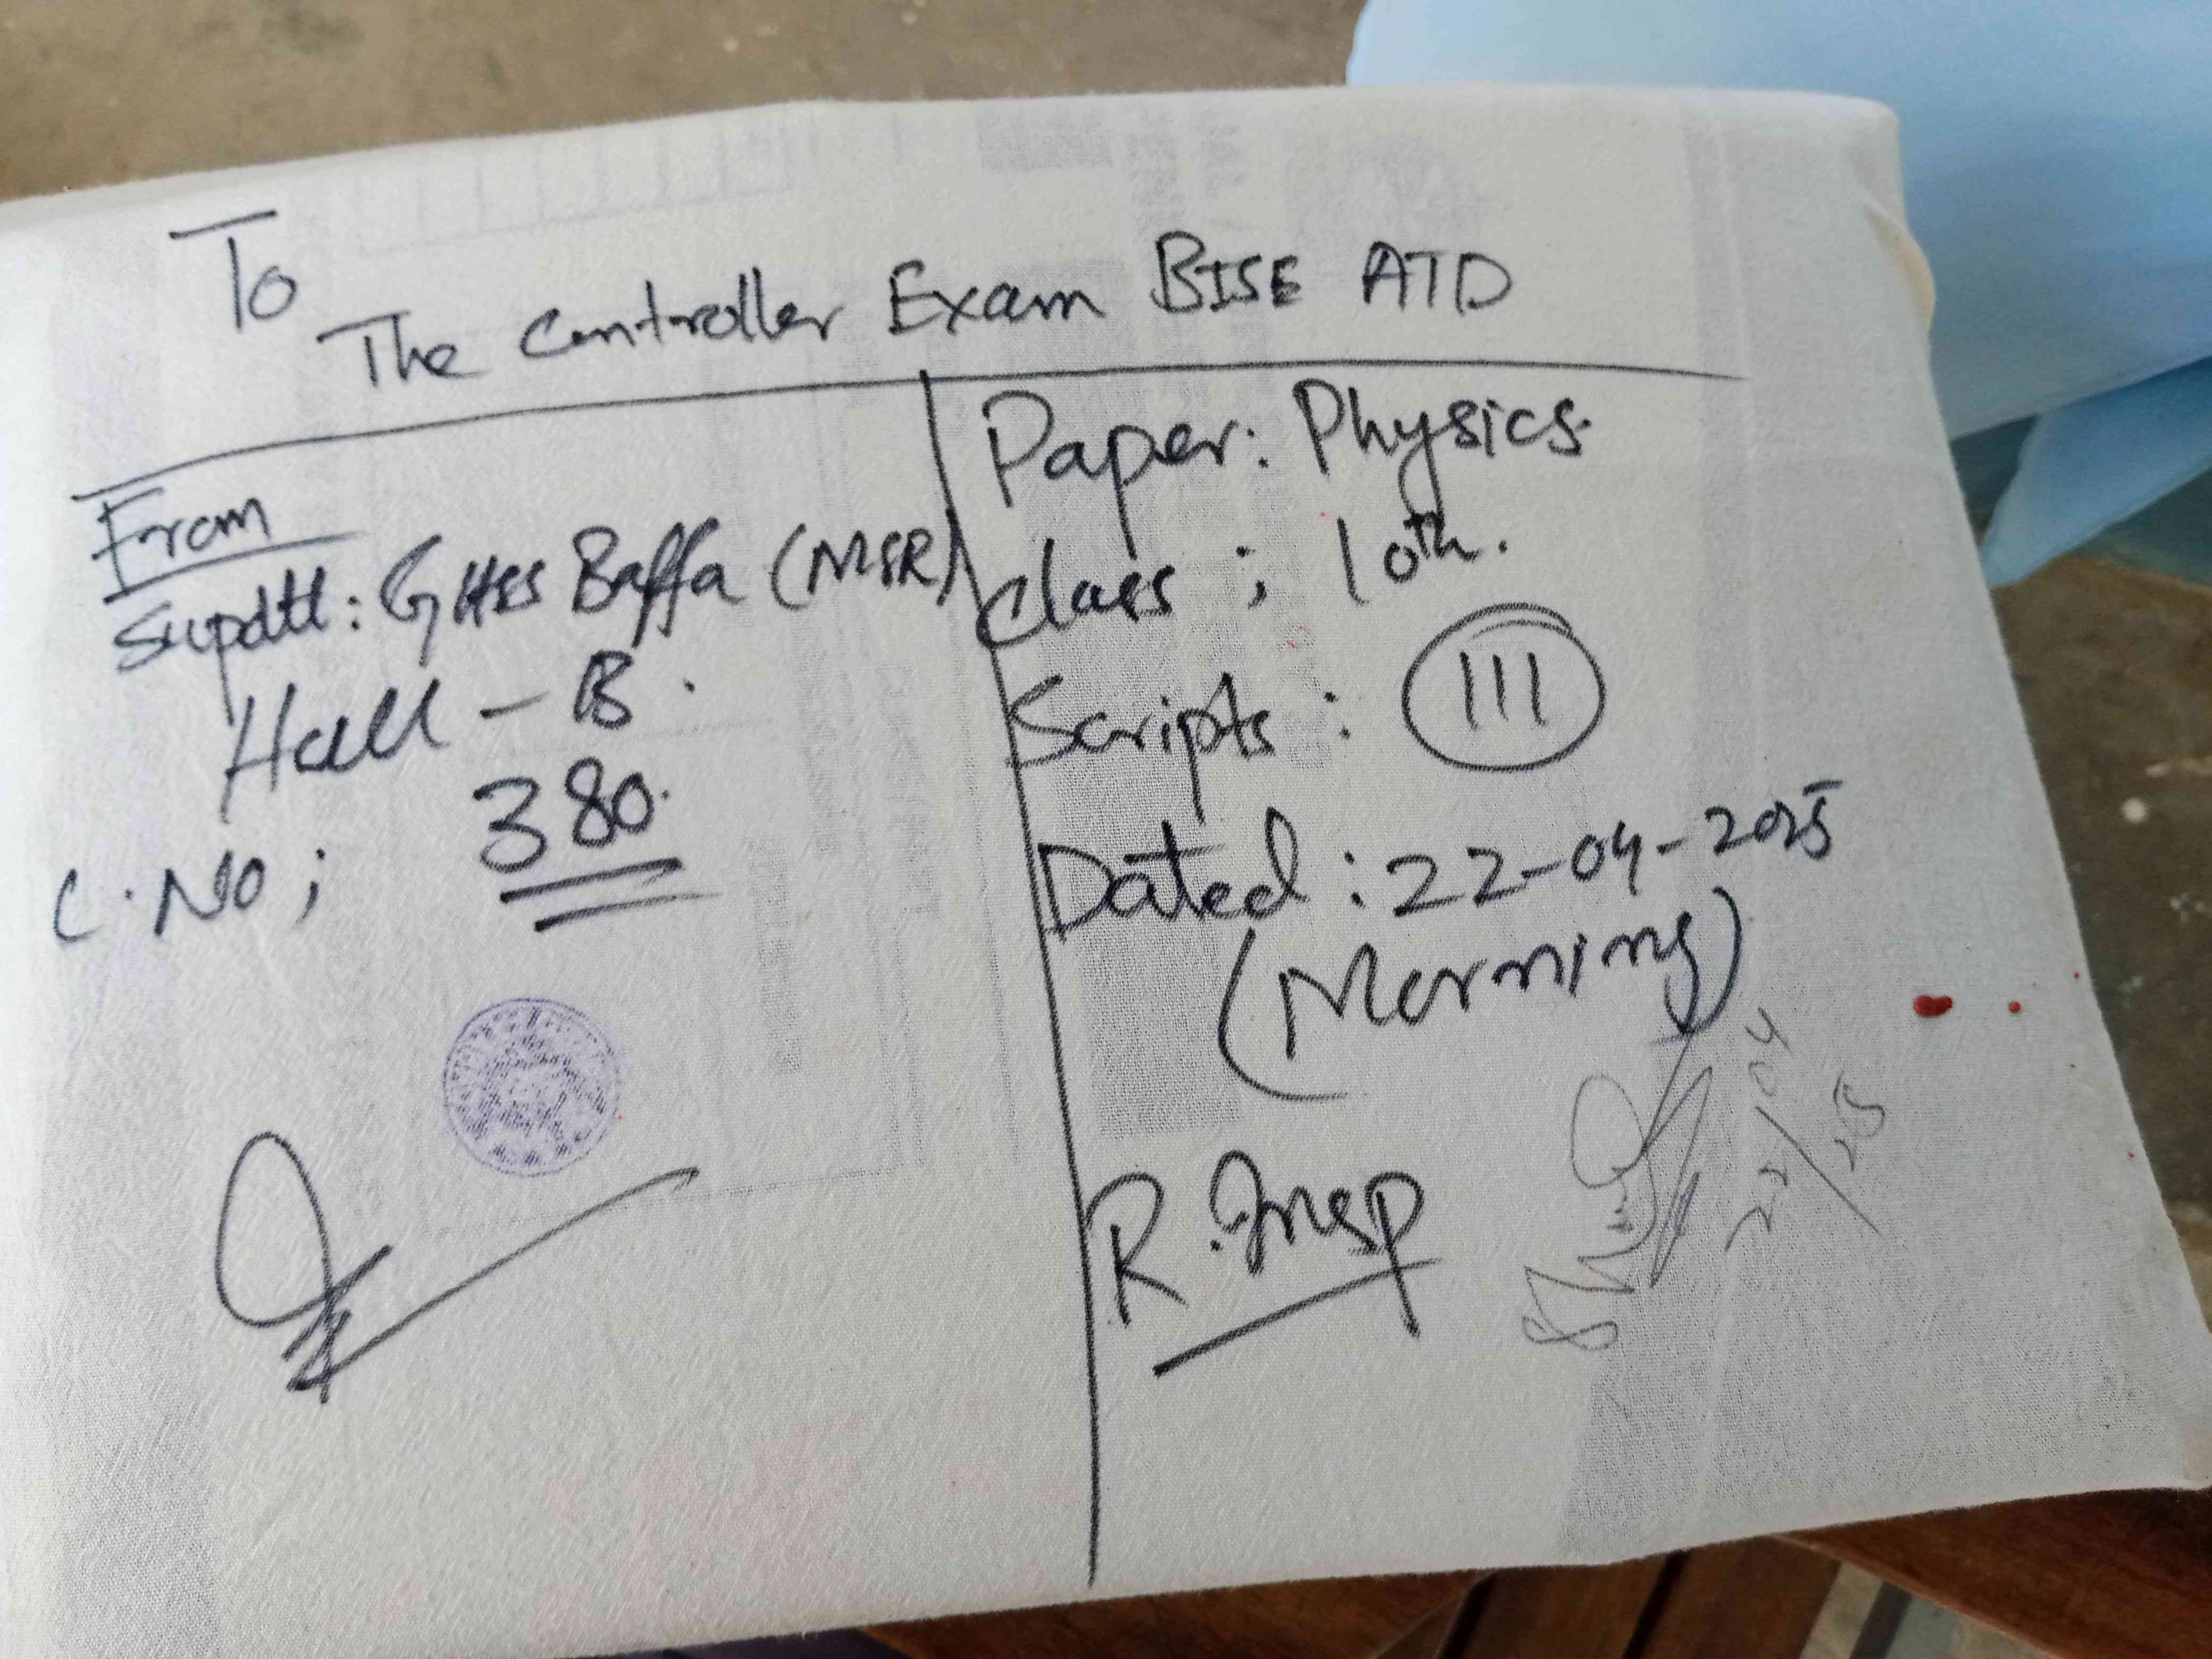 To
The Controller Exam BISE ATD
From
Supdtt: GHSS Baffa (MSR)
Hall - B.
C.No; 380.
Paper: Physics.
Class; 10th.
Scripts: 111
Dated: 22-04-2025
(Morning)
R.Insp
22/04/25